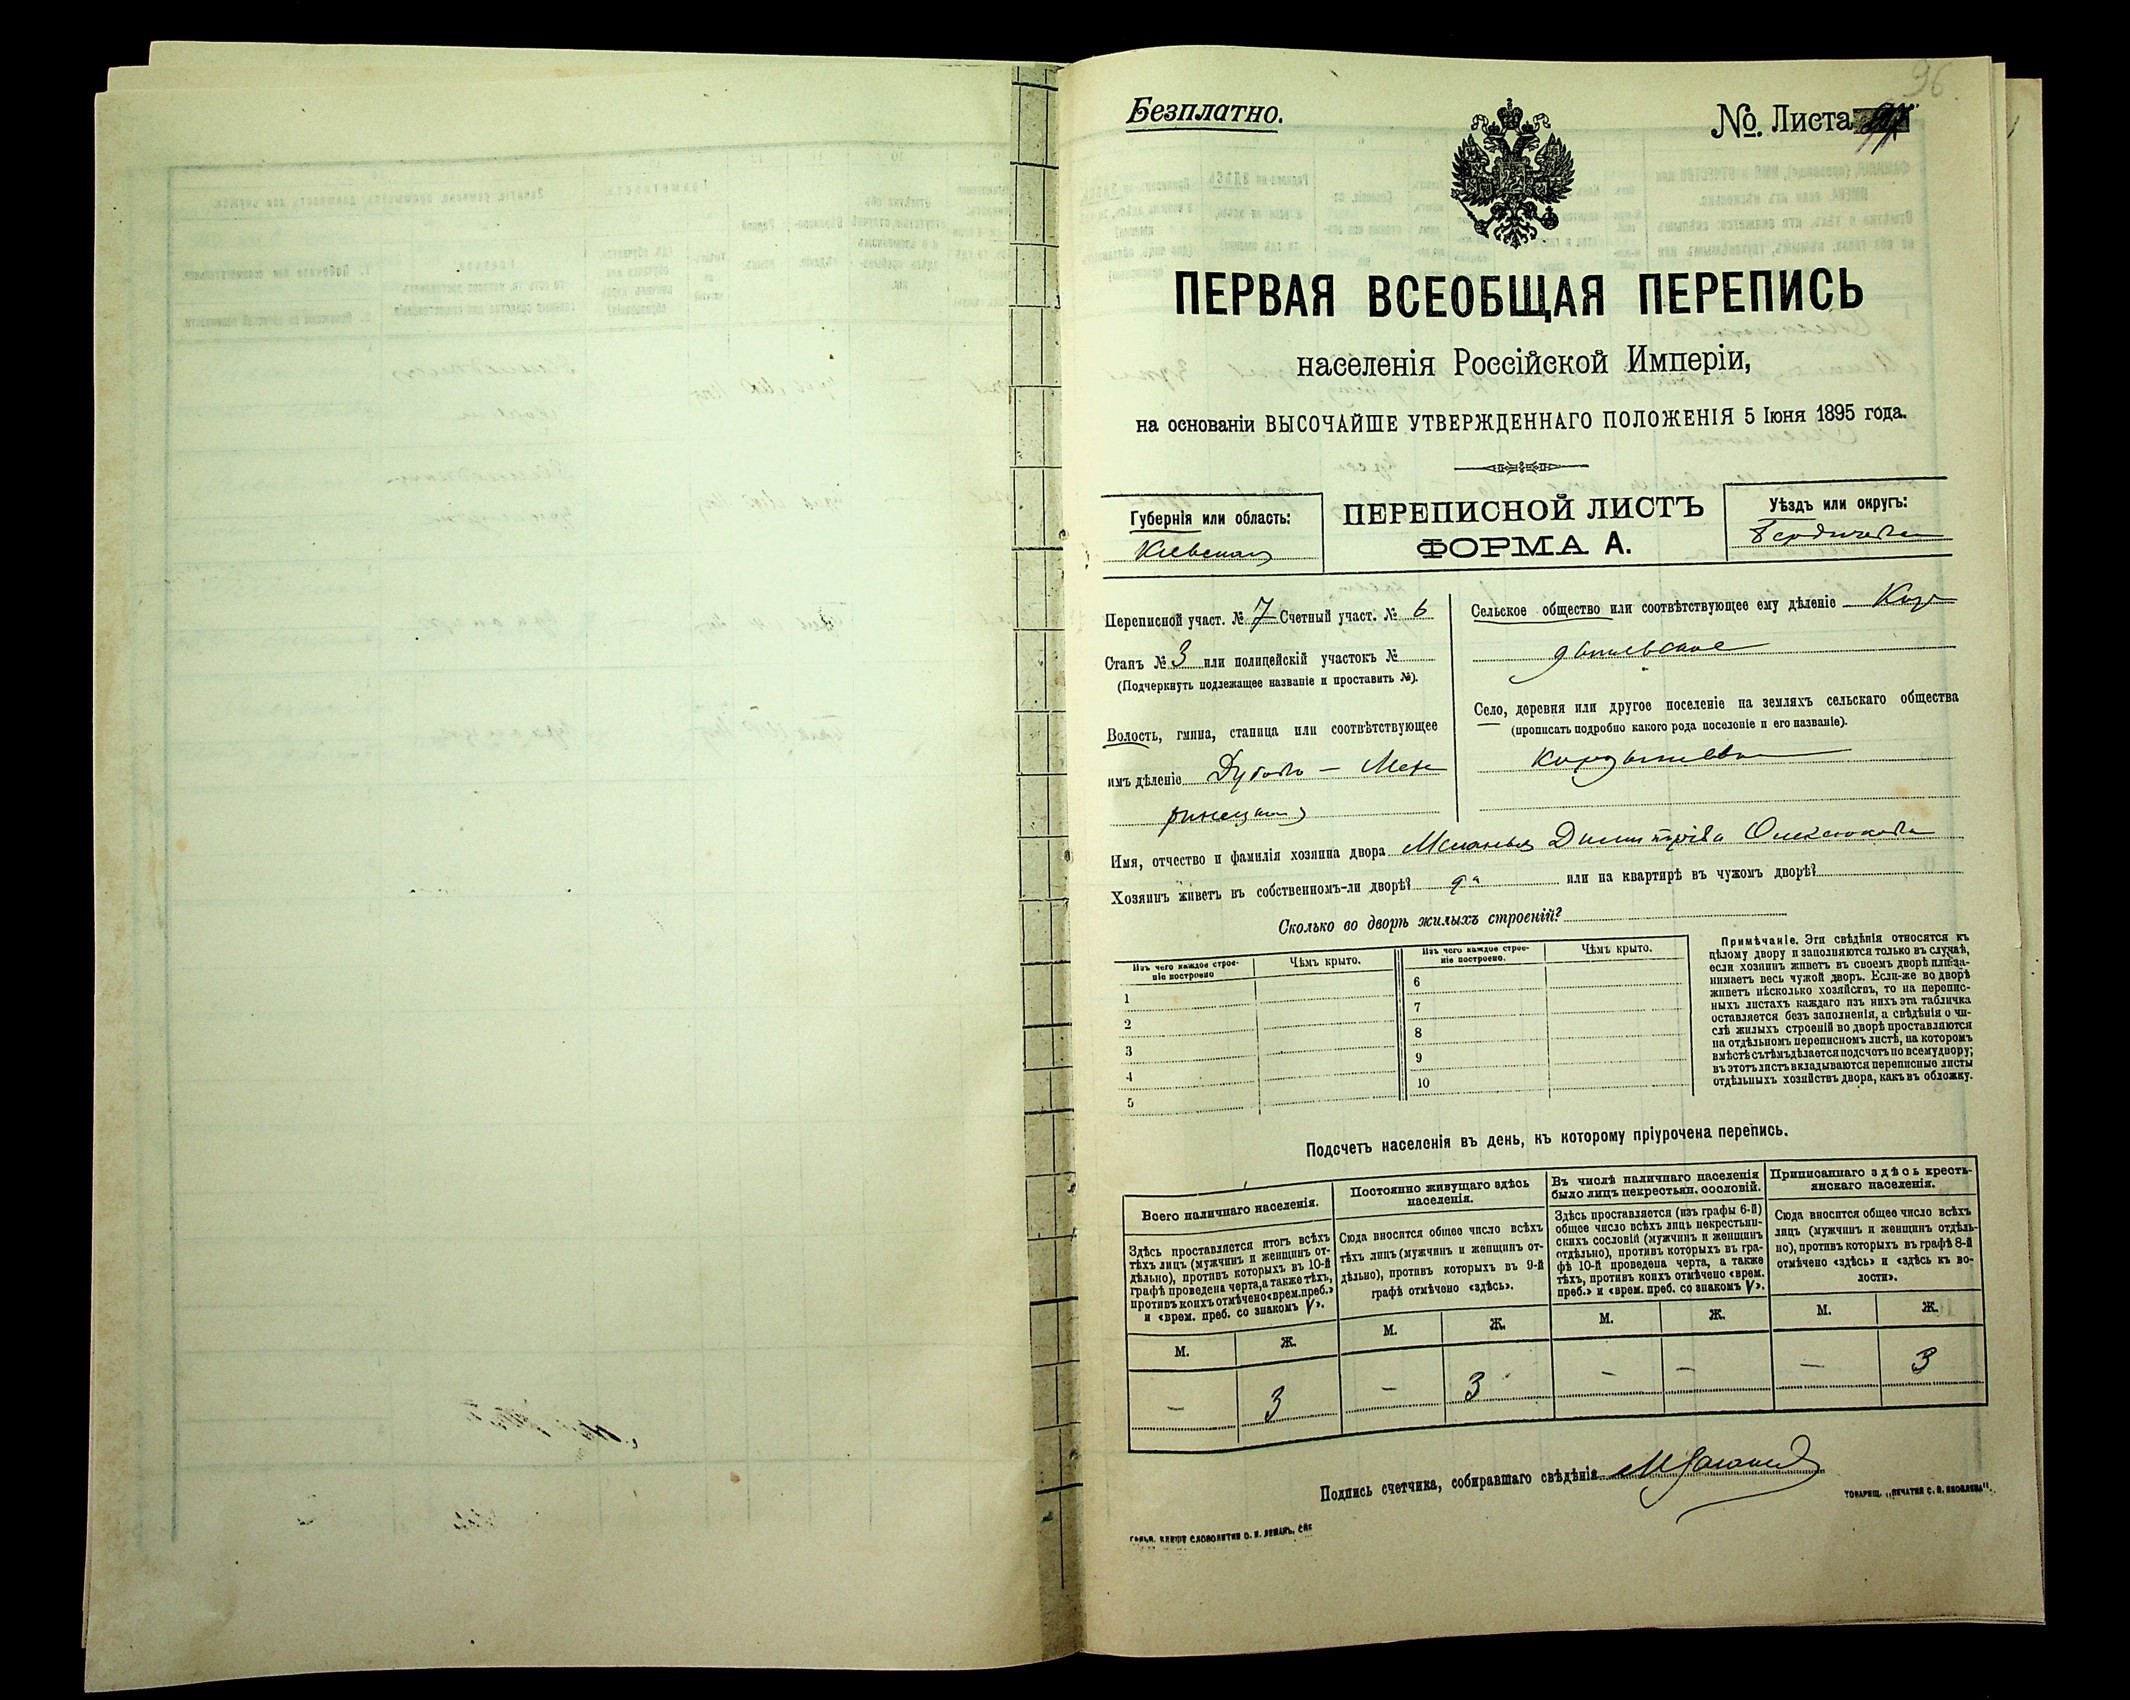 96
Безплатно.
№ Листа
ПЕРВАЯ ВСЕОБЩАЯ ПЕРЕПИСЬ
населенія Россійской Имперіи,
на основаніи ВЫСОЧАЙШЕ УТВЕРЖДЕННАГО ПОЛОЖЕНІЯ 5 Іюня 1895 года.
Губернія или область:
Кіевская
ПЕРЕПИСНОЙ ЛИСТЪ
ФОРМА А.
Уѣздъ или округъ:
Переписной участ. № 7 Счетный участ. № 6
Станъ № 3 или полицейскій участокъ №
(Подчеркнуть подлежащее названіе и проставить №).
Волость, гмина, станица или соотвѣтствующее
имъ дѣленіе Дубово — Меже
Сельское общество или соотвѣтствующее ему дѣленіе
Село, деревня или другое поселеніе на земляхъ сельскаго общества
(прописать подробно какого рода поселеніе и его названіе).
Имя, отчество и фамилія хозяина двора Меланья Димитріева Олексюкова
Хозяинъ живетъ въ собственномъ-ли дворѣ? да или на квартирѣ въ чужомъ дворѣ?
Сколько во дворѣ жилыхъ строеній?
Изъ чего каждое строе-
ніе построено
Чѣмъ крыто.
1
2
3
4
5
Изъ чего каждое строе-
ніе построено.
Чѣмъ крыто.
6
7
8
9
10
Примѣчаніе. Эти свѣдѣнія относятся къ
цѣлому двору и заполняются только въ случаѣ,
если хозяинъ живетъ въ своемъ дворѣ или за-
нимаетъ весь чужой дворъ. Если-же во дворѣ
живетъ нѣсколько хозяйствъ, то на перепис-
ныхъ листахъ каждаго изъ нихъ эта табличка
оставляется безъ заполненія, а свѣдѣнія о чи-
слѣ жилыхъ строеній во дворѣ проставляются
на отдѣльномъ переписномъ листѣ, на которомъ
вмѣстѣ съ тѣмъ дѣлается подсчетъ по всему двору;
въ этотъ листъ вкладываются переписные листы
отдѣльныхъ хозяйствъ двора, какъ въ обложку.
Подсчетъ населенія въ день, къ которому пріурочена перепись.
Всего наличнаго населенія.
Здѣсь проставляется итогъ всѣхъ
тѣхъ лицъ (мужчинъ и женщинъ от-
дѣльно), противъ которыхъ въ 10-й
графѣ проведена черта, а также тѣхъ,
противъ коихъ отмѣчено «врем. преб.»
и «врем. преб. со знакомъ V».
М. Ж.
— 3
Постоянно живущаго здѣсь
населенія.
Сюда вносится общее число всѣхъ
тѣхъ лицъ (мужчинъ и женщинъ от-
дѣльно), противъ которыхъ въ 9-й
графѣ отмѣчено «здѣсь».
М. Ж.
— 3
Въ числѣ наличнаго населенія
было лицъ некрестьян. сословій.
Здѣсь проставляется (изъ графы 6-й)
общее число всѣхъ лицъ некрестьян-
скихъ сословій (мужчинъ и женщинъ
отдѣльно), противъ которыхъ въ гра-
фѣ 10-й проведена черта, а также
тѣхъ, противъ коихъ отмѣчено «врем.
преб.» и «врем. преб. со знакомъ V».
М. Ж.
— —
Приписаннаго здѣсь кресть-
янскаго населенія.
Сюда вносится общее число всѣхъ
лицъ (мужчинъ и женщинъ отдѣль-
но), противъ которыхъ въ графѣ 8-й
отмѣчено «здѣсь» и «здѣсь къ во-
лости».
М. Ж.
— 3
Подпись счетчика, собиравшаго свѣдѣнія
СЛОВОЛИТНИ О. И. ЛЕМАНЪ, СПБ
ТОВАРИЩ. „ПЕЧАТНЯ С. П. ЯКОВЛЕВА".